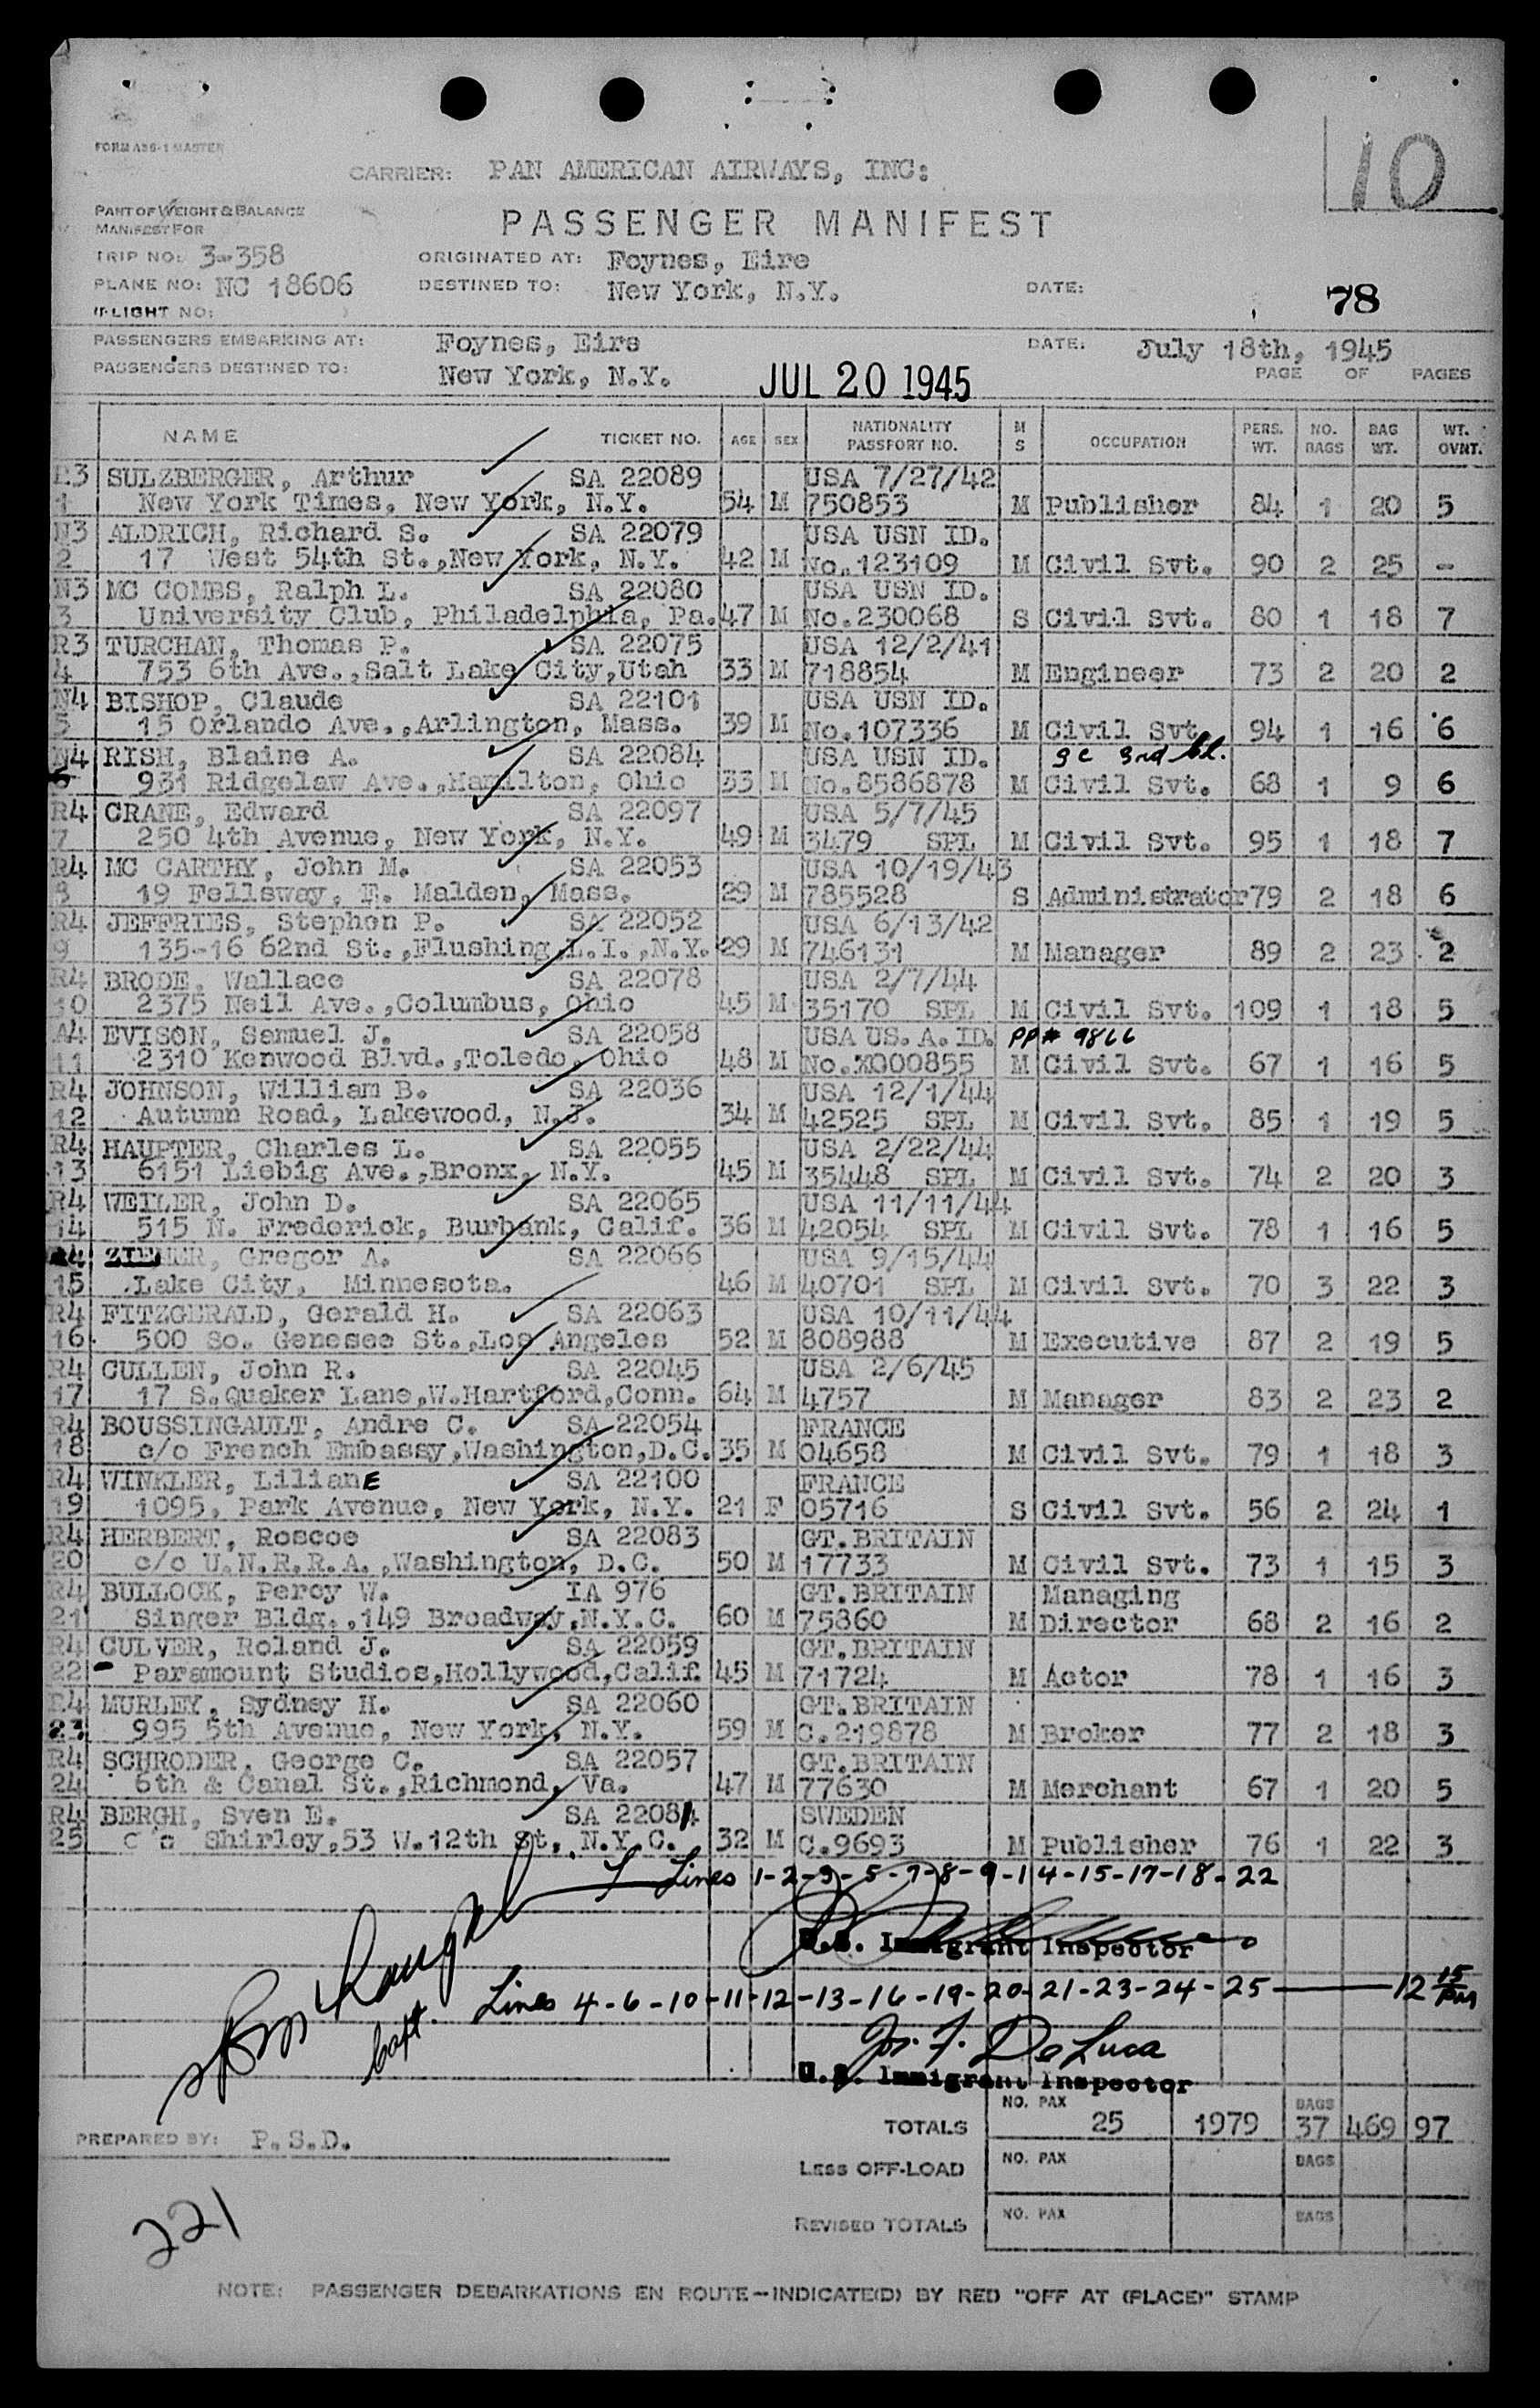 10
FORM A36-1 MASTER
CARRIER: PAN AMERICAN AIRWAYS, INC:
PART OF WEIGHT & BALANCE
MANIFEST FOR
PASSENGER MANIFEST
TRIP NO: 3-358 ORIGINATED AT: Foynes, Eire
PLANE NO: NC 18606 DESTINED TO: New York, N.Y. DATE: 78
FLIGHT NO:
PASSENGERS EMBARKING AT: Foynes, Eire DATE: July 18th, 1945
PASSENGERS DESTINED TO: New York, N.Y. JUL 20 1945 PAGE OF PAGES
NAME TICKET NO. AGE SEX NATIONALITY PASSPORT NO. M S OCCUPATION PERS. WT. NO. BAGS BAG WT. WT. OVNT.
R3 SULZBERGER, Arthur SA 22089 USA 7/27/42
1 New York Times, New York, N.Y. 54 M 750853 M Publisher 84 1 20 5
N3 ALDRICH, Richard S. SA 22079 USA USN ID.
2 17 West 54th St.,New York, N.Y. 42 M No.123109 M Civil Svt. 90 2 25 -
N3 MC COMBS, Ralph L. SA 22080 USA USN ID.
3 University Club, Philadelphia, Pa. 47 M No.230068 S Civil Svt. 80 1 18 7
R3 TURCHAN, Thomas P. SA 22075 USA 12/2/41
4 753 6th Ave.,Salt Lake City,Utah 33 M 718854 M Engineer 73 2 20 2
N4 BISHOP, Claude SA 22101 USA USN ID.
5 15 Orlando Ave.,Arlington, Mass. 39 M No.107336 M Civil Svt. 94 1 16 6
N4 RISH, Blaine A. SA 22084 USA USN ID. SC 3rd Cl.
6 931 Ridgelaw Ave.,Hamilton, Ohio 33 M No.8586878 M Civil Svt. 68 1 9 6
R4 CRANE, Edward SA 22097 USA 5/7/45
7 250 4th Avenue, New York, N.Y. 49 M 3479 SPL M Civil Svt. 95 1 18 7
R4 MC CARTHY, John M. SA 22053 USA 10/19/43
8 19 Fellsway, E. Malden, Mass. 29 M 785528 S Administrator 79 2 18 6
R4 JEFFRIES, Stephen P. SA 22052 USA 6/13/42
9 135-16 62nd St.,Flushing,L.I.,N.Y. 29 M 746131 M Manager 89 2 23 2
R4 BRODE, Wallace SA 22078 USA 2/7/44
10 2375 Neil Ave.,Columbus, Ohio 45 M 35170 SPL M Civil Svt. 109 1 18 5
A4 EVISON, Samuel J. SA 22058 USA US.A.ID. PP# 9866
11 2310 Kenwood Blvd.,Toledo, Ohio 48 M No.X000855 M Civil Svt. 67 1 16 5
R4 JOHNSON, William B. SA 22036 USA 12/1/44
12 Autumn Road, Lakewood, N.J. 34 M 42525 SPL M Civil Svt. 85 1 19 5
R4 HAUPTER, Charles L. SA 22055 USA 2/22/44
13 6151 Liebig Ave.,Bronx, N.Y. 45 M 35448 SPL M Civil Svt. 74 2 20 3
R4 WEILER, John D. SA 22065 USA 11/11/44
14 515 N. Frederick, Burbank, Calif. 36 M 42054 SPL M Civil Svt. 78 1 16 5
R4 ZIEMER, Gregor A. SA 22066 USA 9/15/44
15 Lake City, Minnesota. 46 M 40701 SPL M Civil Svt. 70 3 22 3
R4 FITZGERALD, Gerald H. SA 22063 USA 10/11/44
16 500 So. Genesee St.,Los Angeles 52 M 808988 M Executive 87 2 19 5
R4 CULLEN, John R. SA 22045 USA 2/6/45
17 17 S.Quaker Lane,W.Hartford,Conn. 64 M 4757 M Manager 83 2 23 2
R4 BOUSSINGAULT, Andre C. SA 22054 FRANCE
18 c/o French Embassy,Washington,D.C. 35 M 04658 M Civil Svt. 79 1 18 3
R4 WINKLER, LilianE SA 22100 FRANCE
19 1095, Park Avenue, New York, N.Y. 21 F 05716 S Civil Svt. 56 2 24 1
R4 HERBERT, Roscoe SA 22083 GT.BRITAIN
20 c/o U.N.R.R.A.,Washington, D.C. 50 M 17733 M Civil Svt. 73 1 15 3
R4 BULLOCK, Percy W. IA 976 GT.BRITAIN Managing
21 Singer Bldg.,149 Broadway,N.Y.C. 60 M 75860 M Director 68 2 16 2
R4 CULVER, Roland J. SA 22059 GT.BRITAIN
22 Paramount Studios,Hollywood,Calif. 45 M 71724 M Actor 78 1 16 3
R4 MURLEY, Sydney H. SA 22060 GT.BRITAIN
23 995 5th Avenue, New York, N.Y. 59 M C.219878 M Broker 77 2 18 3
R4 SCHRODER, George C. SA 22057 GT.BRITAIN
24 6th & Canal St.,Richmond, Va. 47 M 77630 M Merchant 67 1 20 5
R4 BERGH, Sven E. SA 22081 SWEDEN
25 c/o Shirley,53 W.12th St, N.Y.C. 32 M C.9693 M Publisher 76 1 22 3
Lines 1-2-3-5-7-8-9-14-15-17-18-22
U.S. Immigrant Inspector
Lines 4-6-10-11-12-13-16-19-20-21-23-24-25 12 15 PM
Capt.
Jos. F. De Luca
U.S. Immigrant Inspector
TOTALS NO. PAX 25 1979 BAGS 37 469 97
PREPARED BY: P.S.D.
LESS OFF-LOAD NO. PAX BAGS
REVISED TOTALS NO. PAX BAGS
221
NOTE: PASSENGER DEBARKATIONS EN ROUTE-INDICATE(D) BY RED "OFF AT (PLACE)" STAMP